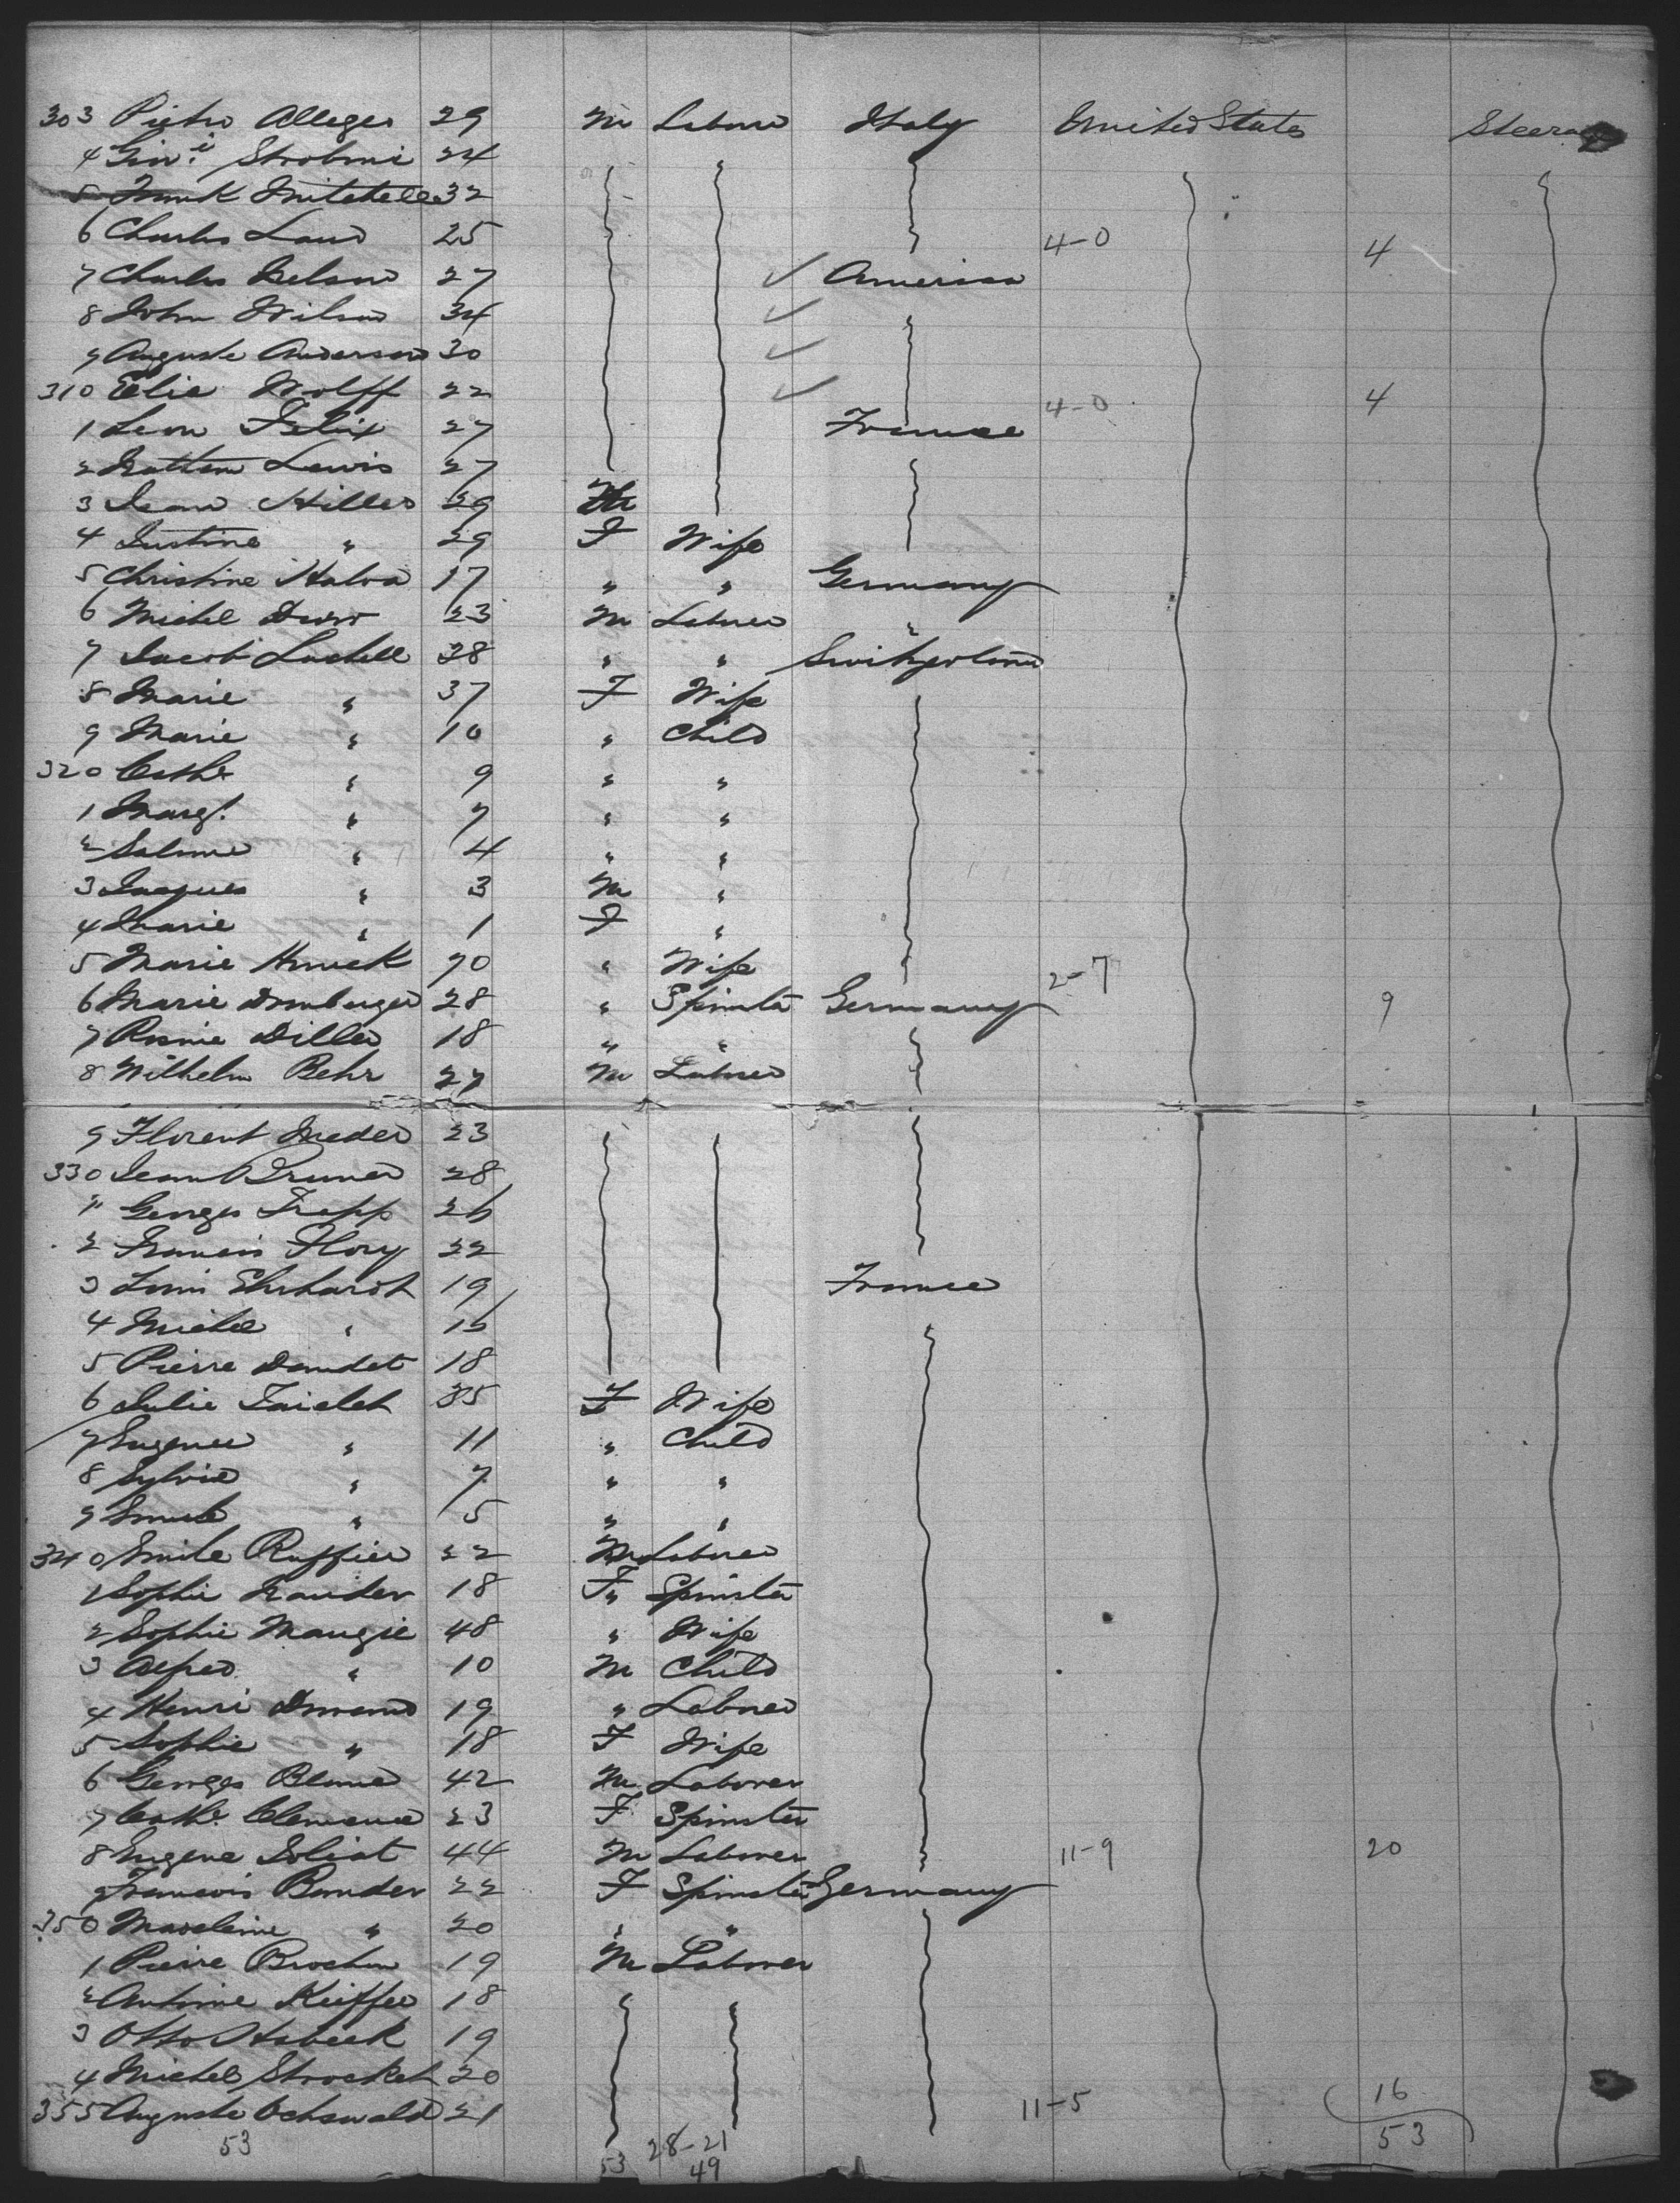 303 Pietro Alleges 29 M Laborer Italy United States Steerage
4 Giov.i Strobini 24
5 Frank Mitchell 32
6 Charles Laus 25 4-0 4
7 Charles Nelson 27 ✓ America
8 John Wilson 34 ✓
9 Auguste Anderson 30 ✓
310 Elie Wolff 22 ✓ 4-0 4
1 Leon Felix 27 France
2 Nathan Lewis 27
3 Jean Hiller 29 M
4 Justine " 29 F Wife
5 Christine Halva 17 " " Germany
6 Michel Durr 23 M Laborer "
7 Jacob Luchell 38 " " Switzerland
8 Marie " 37 F Wife
9 Marie " 10 " Child
320 Cathe " 9 " "
1 Margt. " 7 " "
2 Salome " 4 " "
3 Jacques " 3 M "
4 Marie " 1 F "
5 Marie Hauck 70 " Wife 2-7
6 Marie Dornberger 28 " Spinster Germany 9
7 Rosine Diller 18 " "
8 Wilhelm Behr 27 M Laborer
9 Florent Meder 23
330 Jean Bruner 28
1 Georges Trapp 26
2 Francis Flory 22
3 Louis Ehrhardt 19 France
4 Michel " 16
5 Pierre Daudet 18
6 Julie Faidet 35 F Wife
7 Eugenie " 11 " Child
8 Sylvie " 7 " "
9 Emile " 5 " "
340 Emile Ruffier 22 M Laborer
1 Sophie 18 F " Spinster
2 Sophie Maugie 48 " Wife
3 Alfred " 10 M Child
4 Henri 19 " Laborer
5 Sophie " 18 F Wife
6 Georges Blaise 42 M Laborer
7 Cathe. Clemence 23 F Spinster
8 Eugene Soliat 44 M Laborer 11-9 20
9 Francois Bander 22 F Spinster Germany
350 Madeleine " 20 " "
1 Pierre Brochin 19 M Laborer
2 Antoine Keiffer 18
3 Otto Habeck 19
4 Michel Strockel 20
355 Auguste Ochswald 21 11-5 16
53 53 28-21 53
49